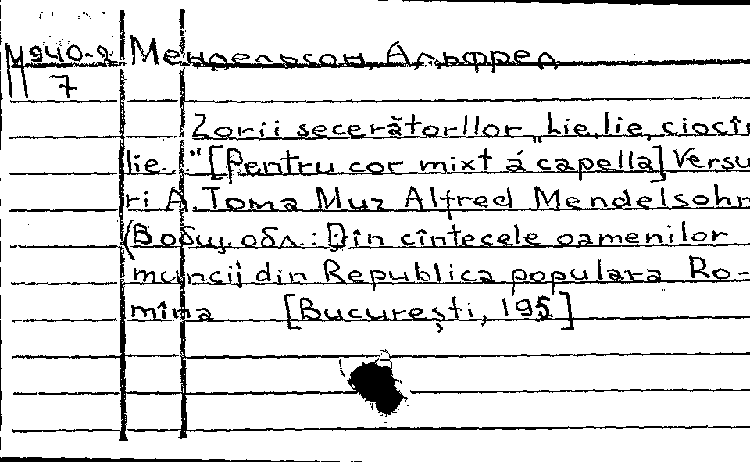 М940-2 Мендельсон, Альфред
7
Zorii secerătorilor „Lie, lie, ciocîr
lie..." [Pentru cor mixt á capella] Versu-
ri A. Toma Muz Alfred Mendelsohn
(В общ. обл.: Din cîntecele oamenilor
muncij din Republica populara Ro-
mîna [București, 195 ]